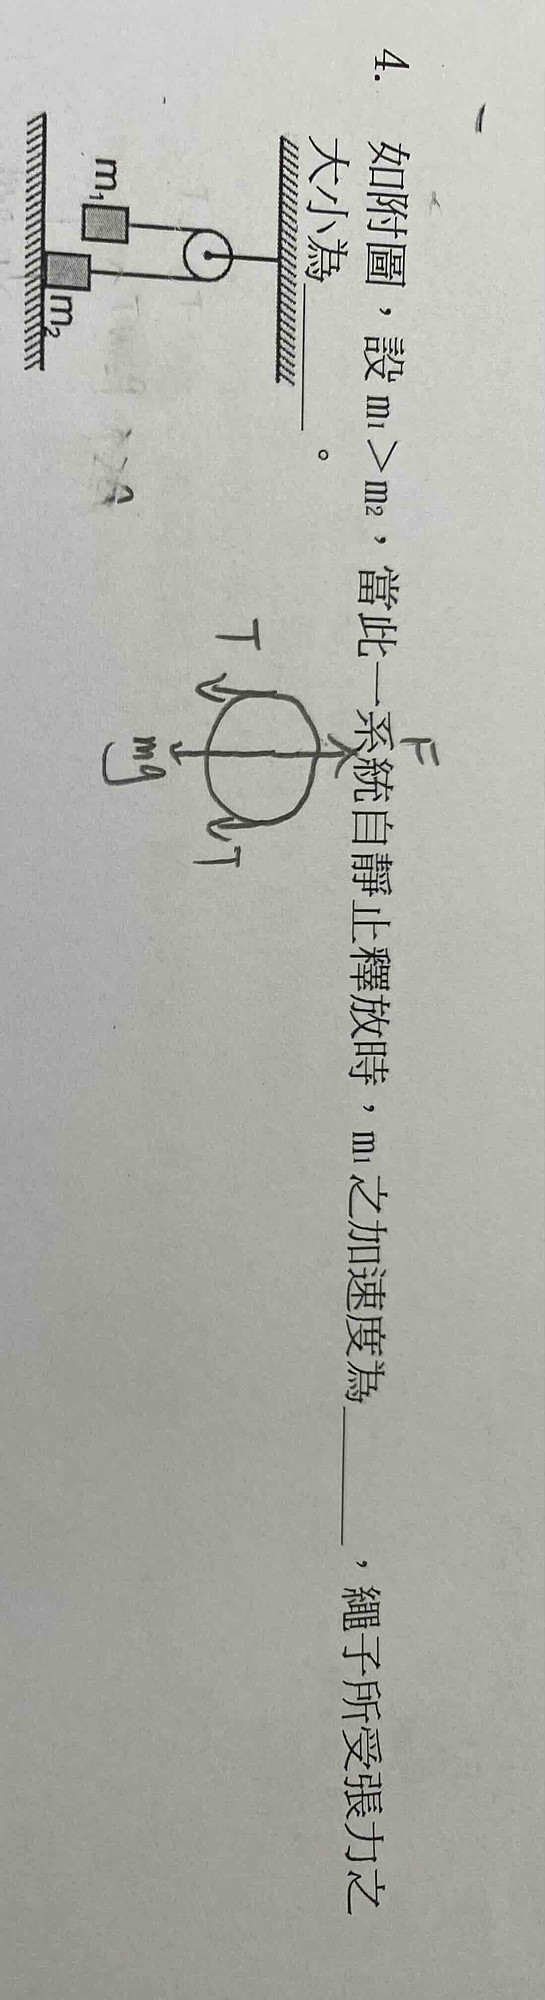 4. 如附圖，設 m₁＞m₂，當此一系統自靜止釋放時，m₁之加速度為＿＿＿＿，繩子所受張力之
大小為＿＿＿＿。
m₁
m₂
F
T
T
mg